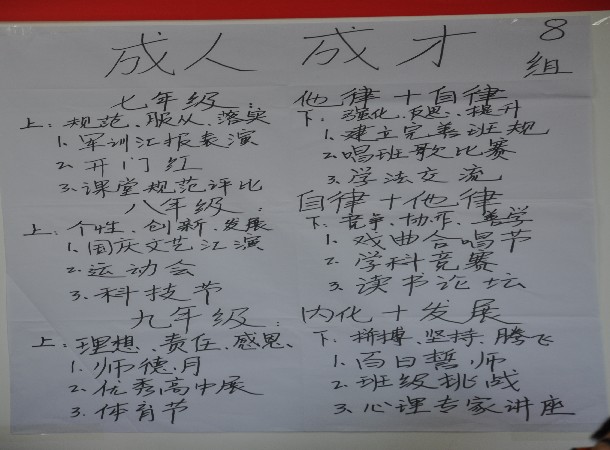 成人 成才 8组
七年级: 他律+自律
上: 规范、服从、落实 下: 强化、反思、提升
1. 军训汇报表演 1. 建立完善班规
2. 开门红 2. 唱班歌比赛
3. 课堂规范评比 3. 学法交流
八年级: 自律+他律
上: 个性、创新、发展 下: 竞争、协作、善学
1. 国庆文艺汇演 1. 戏曲合唱节
2. 运动会 2. 学科竞赛
3. 科技节 3. 读书论坛
九年级: 内化+发展
上: 理想、责任、感恩、 下: 拼搏、坚持、腾飞
1. 师德月 1. 百日誓师
2. 优秀高中展 2. 班级挑战
3. 体育节 3. 心理专家讲座